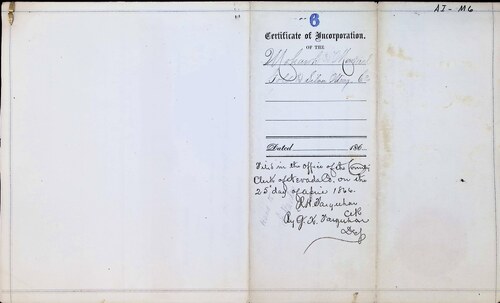 6
AI - M6
Certificate of Incorporation.
OF THE
Mohawk &
G. & Silver Mng. Co
Dated 186
Filed in the office of the County
Clerk of Nevada Co. on the
25 day of April 1864.
R. H. Farquhar
Clk
By G. K. Farquhar
Dep